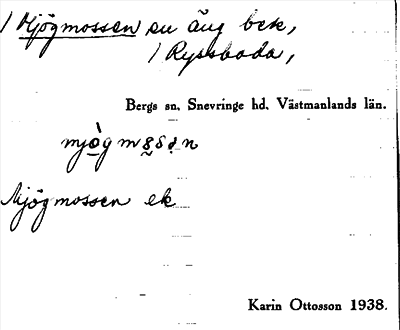 / Mjögmossen en äng bek,
/ Ryssboda,
Bergs sn. Snevringe hd. Västmanlands län.
Mjögmossen ek
Karin Ottosson 1938.